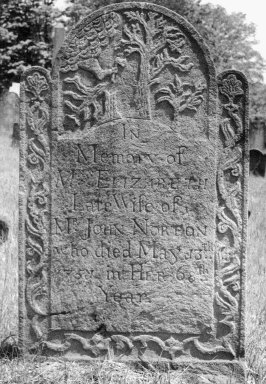 In
Memory of
Mrs Elizabeth
Late Wife of
Mr John Norton
who died May
in Her
Year